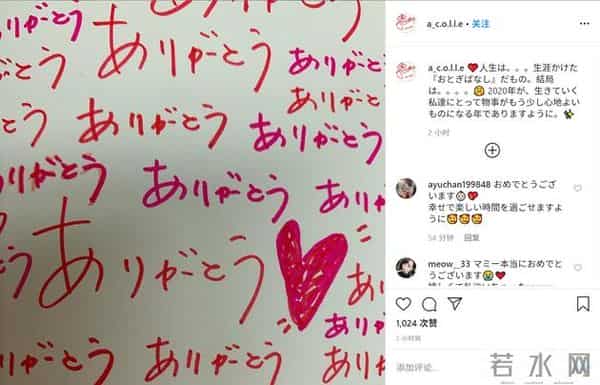 ありがとう
ありがとう
ありがとう
ありがとう
ありがとう
ありがとう
ありがとう
ありがとう
ありがとう
ありがとう
ありがとう
ありがとう
ありがとう
ありがとう
a_c.o.l.l.e • 关注
a_c.o.l.l.e ❤️人生は。。。生涯かけた
『おとぎばなし』だもの。結局
は。。。。 2020年が、生きていく
私達にとって物事がもう少し心地よい
ものになる年でありますように。
2 小时
ayuchan199848 おめでとうござ
います
幸せで楽しい時間を過ごせますよ
うに
54 分钟 回复
meow__33 マミー本当におめで
とうございます
1,024 次赞
2 小时前
添加评论...
若水网